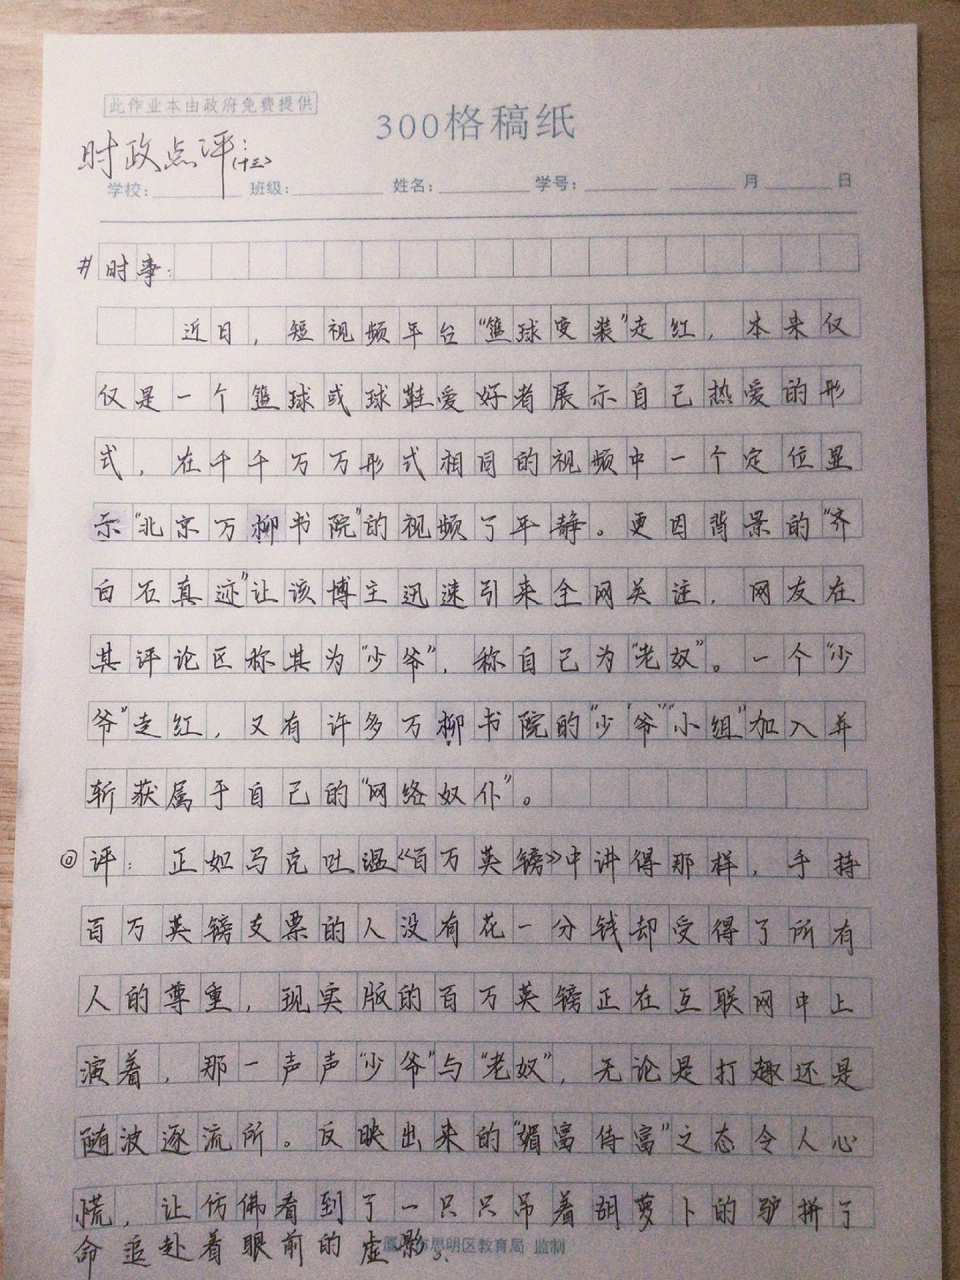 此作业本由政府免费提供
300格稿纸
时政点评(十三)
学校: 班级: 姓名: 学号: 月 日
#时事:
近日，短视频平台“篮球变装”走红，本来仅
仅是一个篮球或球鞋爱好者展示自己热爱的形
式，在千千万万形式相同的视频中一个定位显
示“北京万柳书院”的视频了平静。更因背景的“齐
白石真迹”让该博主迅速引来全网关注，网友在
其评论区称其为“少爷”，称自己为“老奴”。一个“少
爷”走红，又有许多万柳书院的“少爷”“小组”加入并
斩获属于自己的“网络奴仆”。
◎评: 正如马克吐温《百万英镑》中讲得那样，手持
百万英镑支票的人没有花一分钱却受得了所有
人的尊重，现实版的百万英镑正在互联网中上
演着，那一声声“少爷”与“老奴”，无论是打趣还是
随波逐流所。反映出来的“媚富侍富”之态令人心
慌，让仿佛看到了一只只吊着胡萝卜的驴拼了
命追赴着眼前的虚影。
市思明区教育局 监制